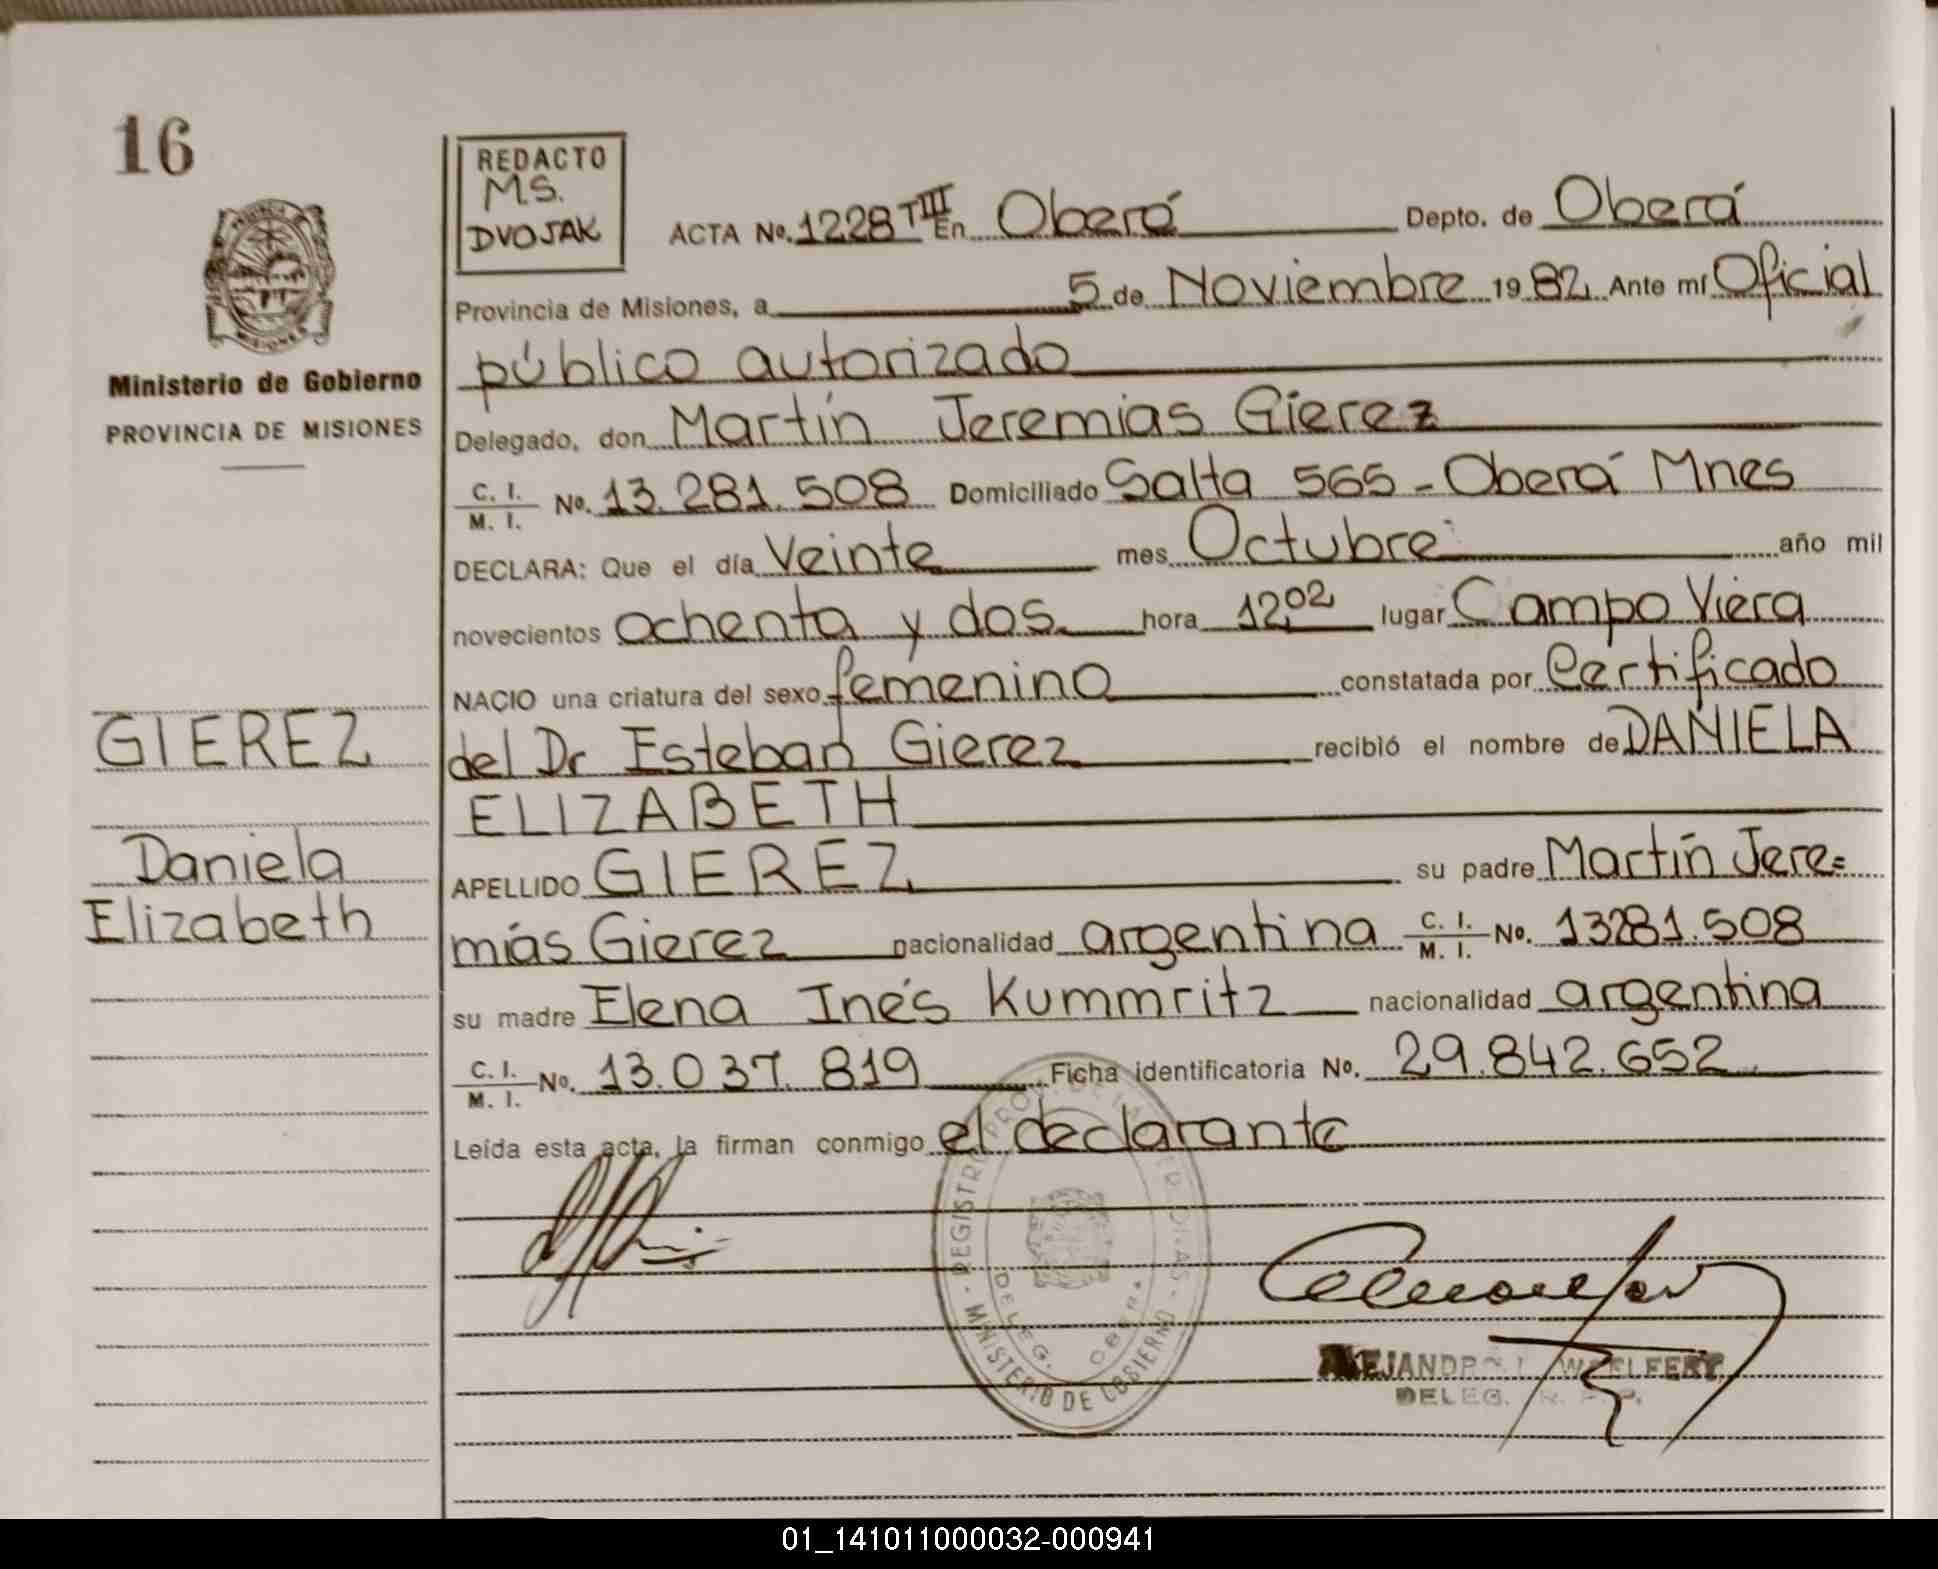 16
REDACTO
M.S.
DVOJAK
ACTA No. 1228 TIII En Oberá Depto. de Oberá
Provincia de Misiones, a 5 de Noviembre 1982 Ante mí Oficial
público autorizado
Ministerio de Gobierno
PROVINCIA DE MISIONES
Delegado, don Martín Jeremias Gierez
C. I. / M. I. No. 13.281.508 Domiciliado Salta 565 - Oberá Mnes
DECLARA: Que el día Veinte mes Octubre año mil
novecientos ochenta y dos hora 12,02 lugar Campo Viera
NACIO una criatura del sexo femenino constatada por Certificado
GIEREZ
del Dr Esteban Gierez recibió el nombre de DANIELA
ELIZABETH
Daniela
Elizabeth
APELLIDO GIEREZ su padre Martín Jere=
mías Gierez nacionalidad argentina C. I. / M. I. No. 13281.508
su madre Elena Inés Kummritz nacionalidad argentina
C. I. / M. I. No. 13.037.819 Ficha identificatoria No. 29.842.652
Leída esta acta, la firman conmigo el declarante
MINISTERIO DE GOBIERNO
DELEG. OBERA
DELEG.
01_141011000032-000941